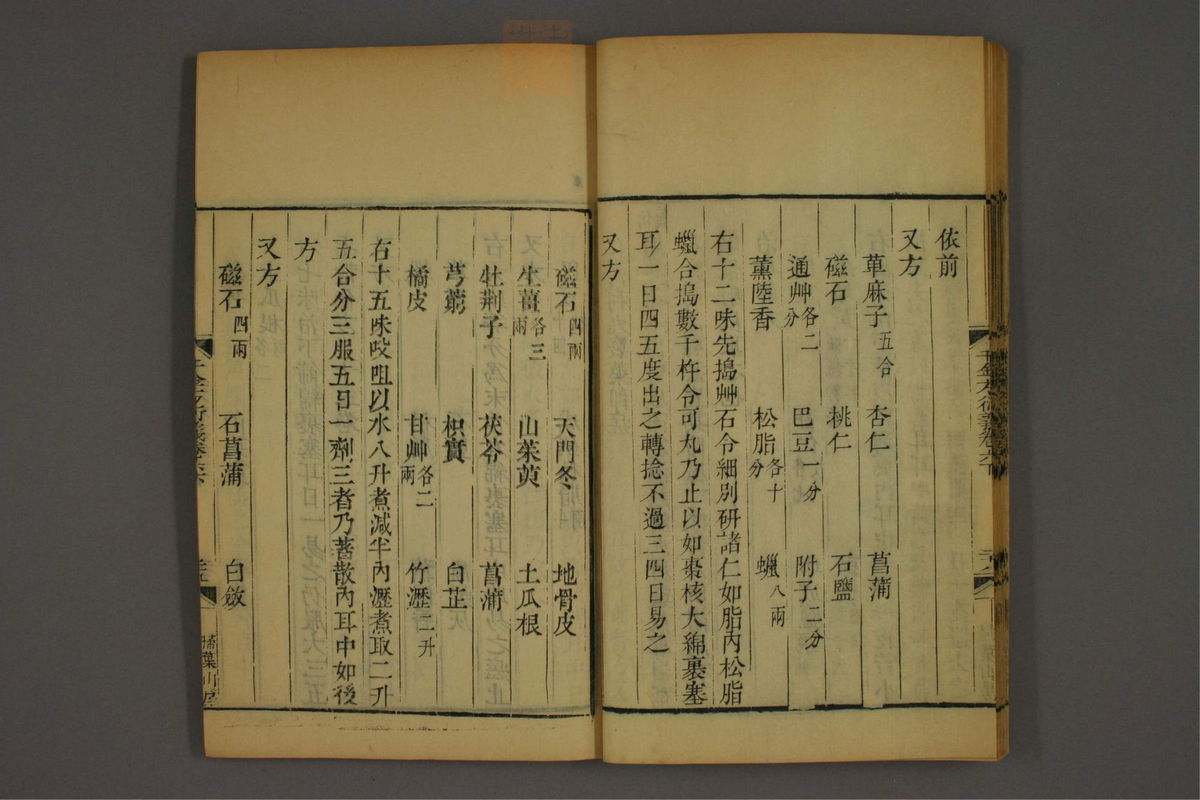 依前
又方
萆麻子五合 杏仁 菖蒲
磁石 桃仁 石鹽
通艸各二分 巴豆一分 附子二分
薰陸香 松脂各十分 蠟八兩
右十二味先搗艸石令細別研諸仁如脂內松脂
蠟合搗數千杵令可丸乃止以如棗核大綿裹塞
耳一日四五度出之轉捻不過三四日易之
又方
磁石四兩 天門冬 地骨皮
生薑各三兩 山茱萸 土瓜根
牡荊子 茯苓 菖蒲
芎藭 枳實 白芷
橘皮 甘艸各二兩 竹瀝二升
右十五味㕮咀以水八升煮減半內瀝煮取二升
五合分三服五日一劑三者乃著散內耳中如後
方
又方
磁石四兩 石菖蒲 白斂
千金方衍義卷六
掃葉山房